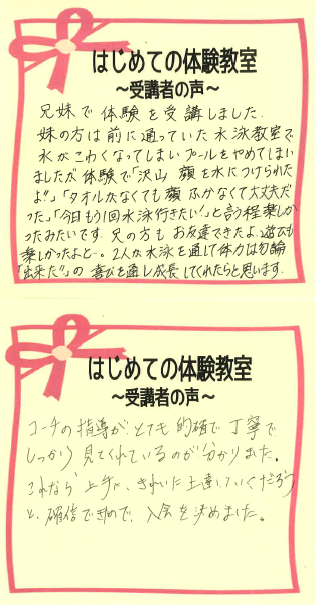 はじめての体験教室
～受講者の声～
兄妹で体験を受講しました.
妹の方は前に通っていた水泳教室で
水がこわくなってしまいプールをやめてしまい
ましたが体験で「沢山顔を水につけられた
よ!!」「タオルがなくても顔ふかなくて大丈夫だ
った」「今日もう1回水泳行きたい!」と言う程楽しか
ったみたいです.兄の方もお友達できたよ.遊びも
楽しかったよと…。2人が水泳を通して体力は勿論
「出来た!!」の喜びを通し成長してくれたらと思います.
はじめての体験教室
～受講者の声～
コーチの指導が、とても的確で丁寧で
しっかり見てくれているのが分かりました。
これなら上手に、きれいに上達していくだろう
と、確信できたので、入会を決めました。